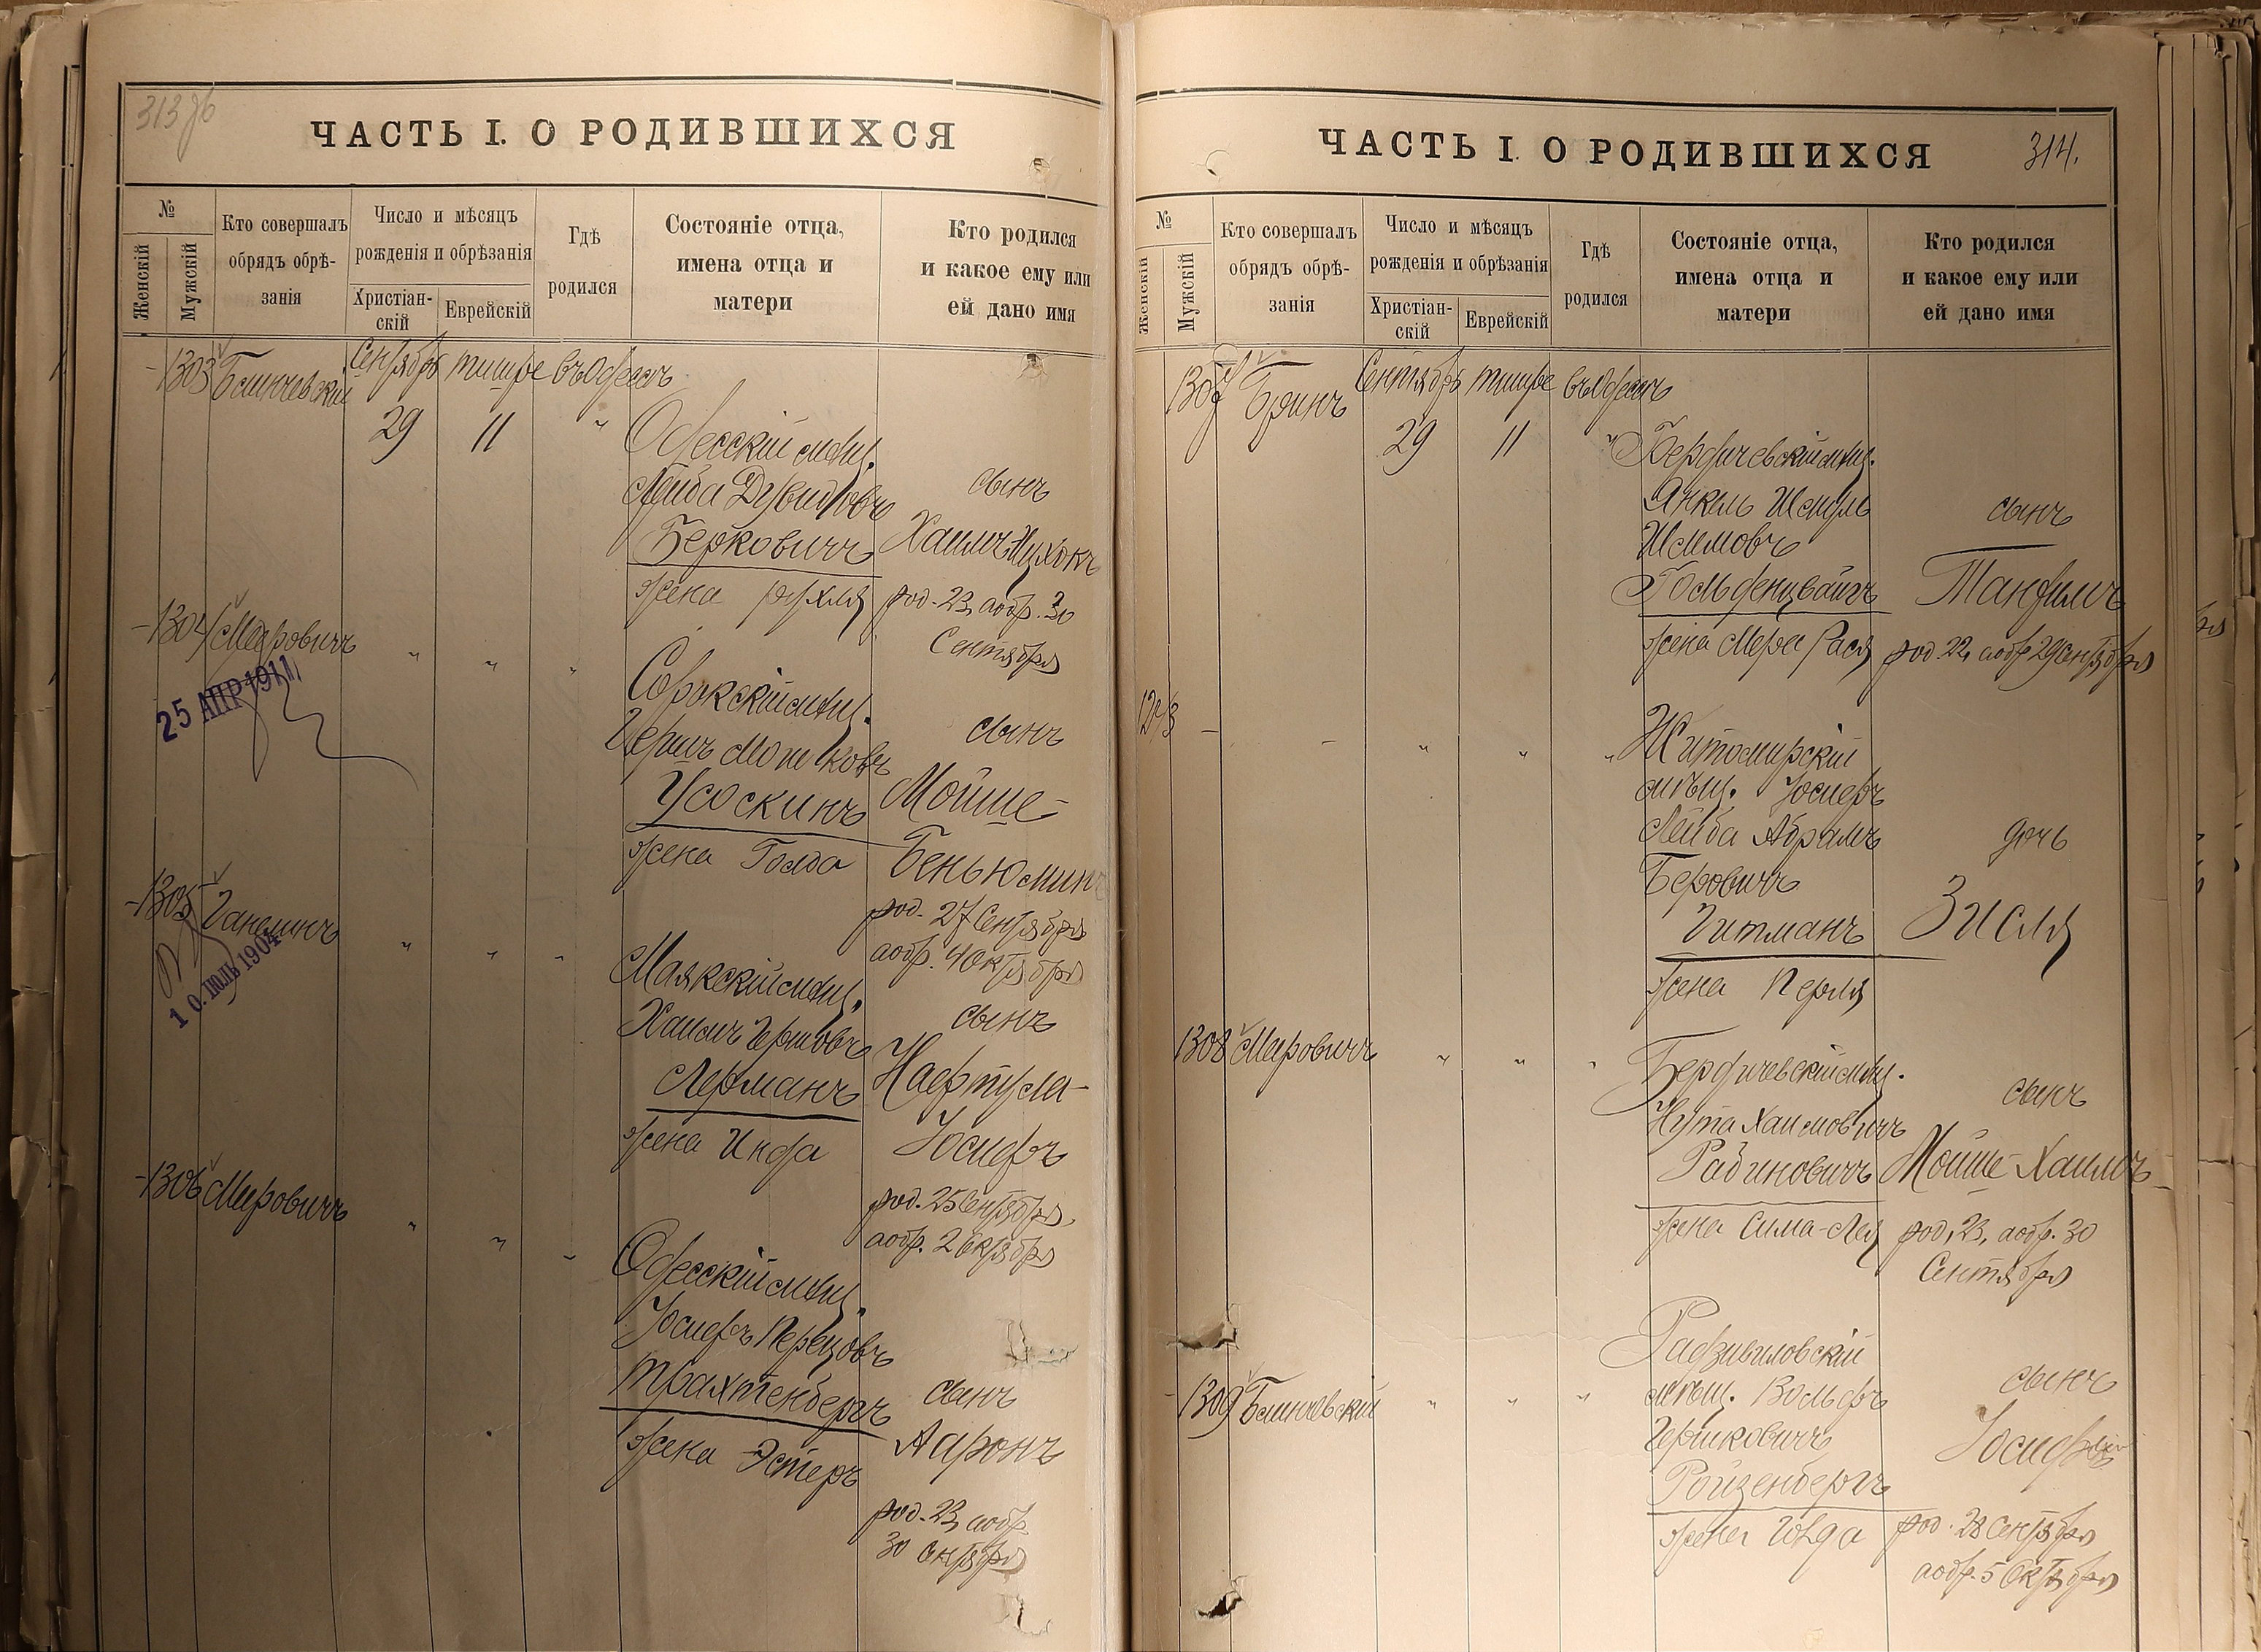 313 об
ЧАСТЬ I. О РОДИВШИХСЯ
№
Женскій
Мужскій
Кто совершалъ
обрядъ обрѣ-
занія
Число и мѣсяцъ
рожденія и обрѣзанія
Христіан-
скій
Еврейскій
Гдѣ
родился
Состояніе отца,
имена отца и
матери
Кто родился
и какое ему или
ей дано имя
1303 Сентябрь тишре въ Одессѣ
29 11 "
Одесскій мѣщ.
Лейба Дувидовъ
Берковичъ
жена Рухля
сынъ
Хаимъ Ицхокъ
род. 23, а обр. 30
Сентября
1304 Меировичъ " " "
25 АПР 1911
Сорокскій мѣщ.
Гершъ Мошковъ
Усоскинъ
жена Голда
сынъ
Мойше-
Беньюминъ
род. 27 Сентября
а обр. 4 Октября
1305 Ганелинъ " " "
10. ІЮЛЬ 1904
Маякскій мѣщ.
Хаимъ Гершовъ
Лерманъ
жена Инда
сынъ
Нафтула-
Іосифъ
род. 25 Сентября,
а обр. 2 Октября
1306 Меировичъ " " "
Одесскій мѣщ.
Іосифъ Перецовъ
Трахтенбергъ
жена Эстеръ
сынъ
Ааронъ
род. 23, а обр.
30 Сентября
ЧАСТЬ I. О РОДИВШИХСЯ
314.
№
Женскій
Мужскій
Кто совершалъ
обрядъ обрѣ-
занія
Число и мѣсяцъ
рожденія и обрѣзанія
Христіан-
скій
Еврейскій
Гдѣ
родился
Состояніе отца,
имена отца и
матери
Кто родился
и какое ему или
ей дано имя
1307 Гринъ Сентябрь тишре въ Одессѣ
29 11 "
Бердичевскій мѣщ.
Янкель Шмуль
Шлимовъ
Гольденцвайгъ
жена Мера Рася
сынъ
Танфилъ
род. 22, а обр. 29 Сентября
- - " " "
Житомирскій
мѣщ. Іосифъ
Лейба Абрамъ
Беровичъ
Гитманъ
жена Перля
дочь
Зисля
1308 Меировичъ " " "
Бердичевскій мѣщ.
Нута Хаимовичъ
Рабиновичъ
жена Сима-Лея
сынъ
Мойше-Хаимъ
род. 23, а обр. 30
Сентября
1309 " " "
Радзивиловскій
мѣщ. Вольфъ
Гершковичъ
Ройзенбергъ
жена Голда
сынъ
Іосифъ
род. 28 Сентября
а обр. 5 Октября